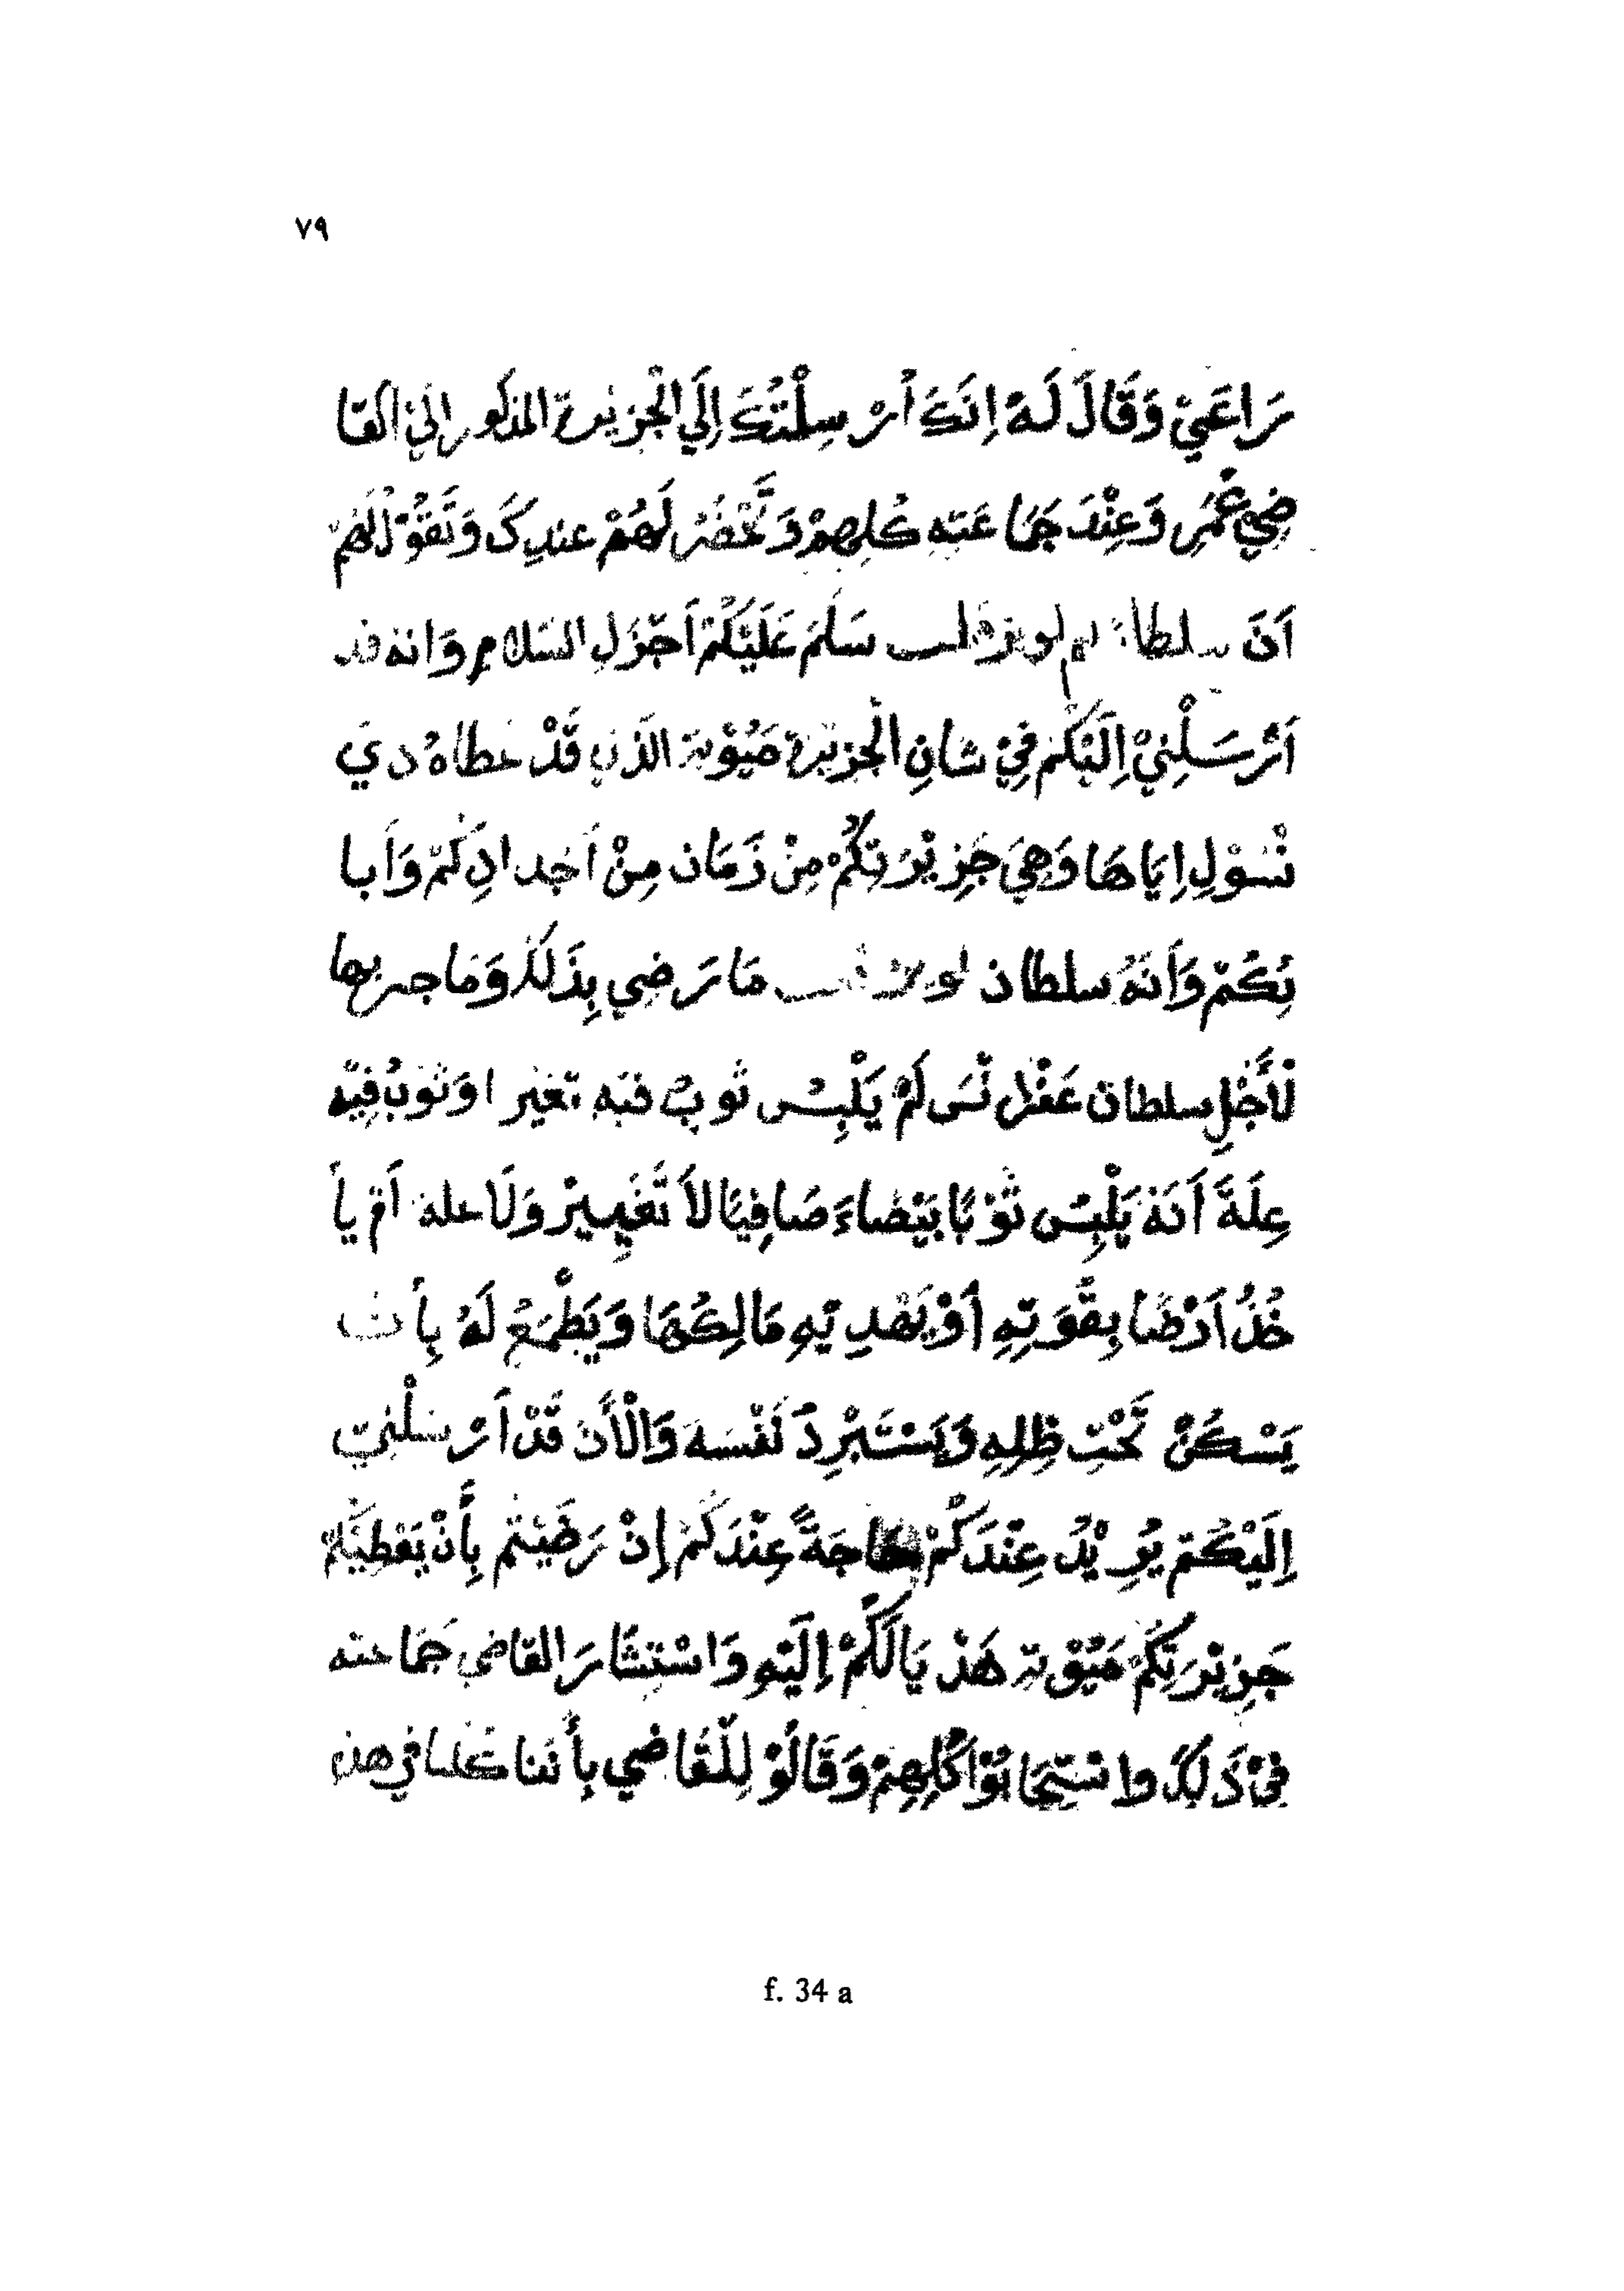 ٧٩
رَاعَيْ وَقَالَ لَهُ اِنَكَ اَرْسِلْتُكَ اِلَي الْجَزِيرة المذكور اِلَيْ القا
ضِي عُمَرِ وَعِنْدَ جَمَاعَتِهِ كُلِهِمْ وَتَحْضُرُ لَهُمْ عندِكَ وَتَقُوْلُ لَهُمْ
اَنَ سلطان سَلَمَ عَلَيْكُمْ اَجْزَلِ السَلام وَانه قد
اَرْسَلْنِيْ اِلَيْكُمْ فِيْ شانِ الْجَزِيْرة مَيُوْتة الذي قَدْ خطاهُ دي
نْسُوْلِ اِيَاهَا وَهِيَ جَزِيْرَتِكُمْ مِنْ زَمَان مِنْ اَجْدادِكُمْ وَاَبا
ئِكُمْ وَاَنَهُ سلطان مَا رَضِي بِذَلِكَ وَمَا جربها
لْأَجْلِ سلطان لَمْ يَلْبِسُ ثوبٌ فيْهِ تغير او ثَوبُ فِيْه
عِلَةً اَنَهُ يَلْبِسُ ثَوْبًا بَيْضاءَ صَافِيًا لاَ تَغْيِيْرْ وَلَا علة اَمْ يأ
خُذُ اَرْضًا بِقُوَتِهِ اَوْ يَهْدِيْهِ مَالِكُهَا وَيَطْمَعُ لَهُ بِأن
يَسْكُنْ تَحْتِ ظِلِهِ وَيَسْتَبْرِدَ نَفْسَهُ وَالْأَنَ قَدْ اَرْسَلْنِي
اِلَيْكُمْ يُرِيْدُ عِنْدَكُمْ حَاجَةً عِنْدَكُمْ اِنْ رَضَيْتُم بِأَنْ يَعْطِيَكُمْ
جَزِيْرَتِكُمْ مَيُوْتة هَذْ يَالَكُمْ اِلَيْهِ وَاسْتِشَارَ القاضي جَمَاعته
فِيْ ذَلِكَ وا سْتِجَابُوْا كُلِهِمْ وَقَالُوْ لِلْقَاضِي بِأَنَنا كلنا في هذ
f. 34 a